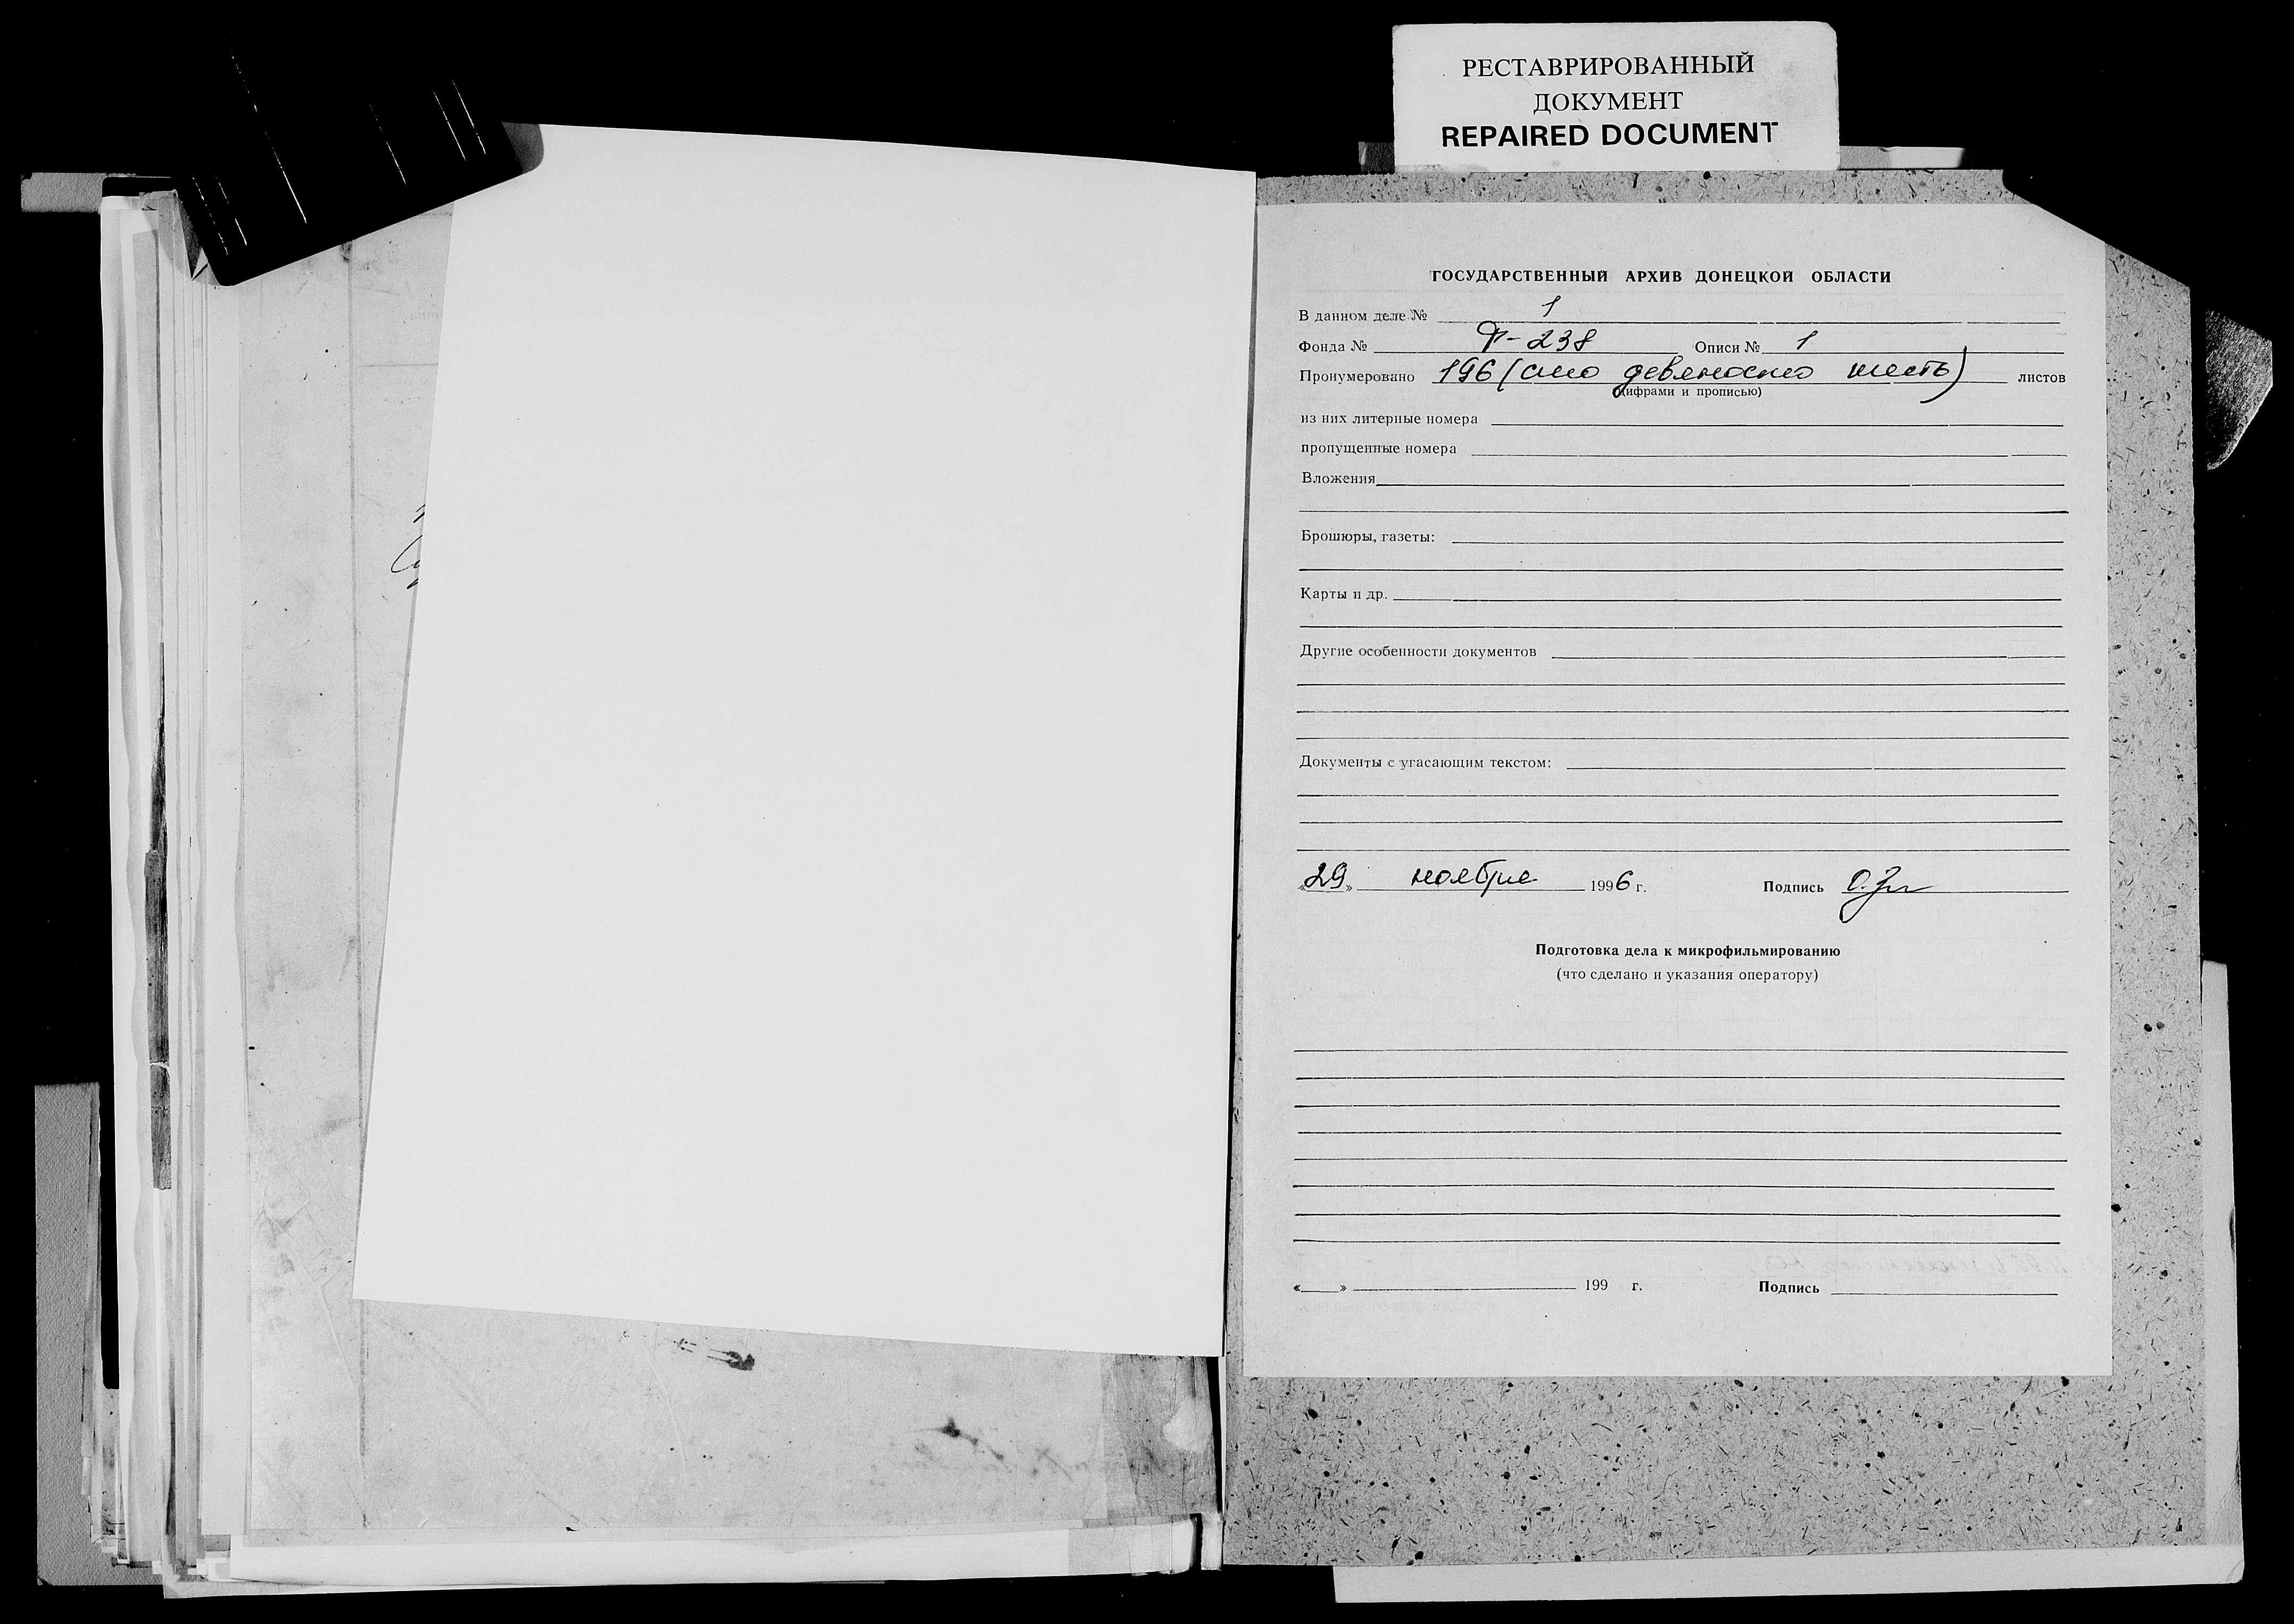 РЕСТАВРИРОВАННЫЙ
ДОКУМЕНТ
REPAIRED DOCUMENT
ГОСУДАРСТВЕННЫЙ АРХИВ ДОНЕЦКОЙ ОБЛАСТИ
В данном деле № 1
Фонда № Ф-238 Описи № 1
Пронумеровано 196 (сто девяносто шесть) листов
(цифрами и прописью)
из них литерные номера
пропущенные номера
Вложения
Брошюры, газеты:
Карты и др.
Другие особенности документов
Документы с угасающим текстом:
«29» ноября 1996 г. Подпись
Подготовка дела к микрофильмированию
(что сделано и указания оператору)
«   » 199 г. Подпись